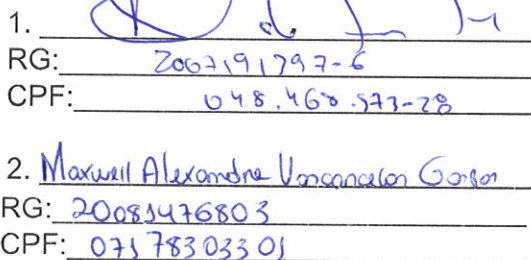 1.
RG: 2007191797-6
CPF: 048.460.573-28
2. Maxwell Alexandre Vasconcelos
RG: 20081476803
CPF: 071 783 033 01